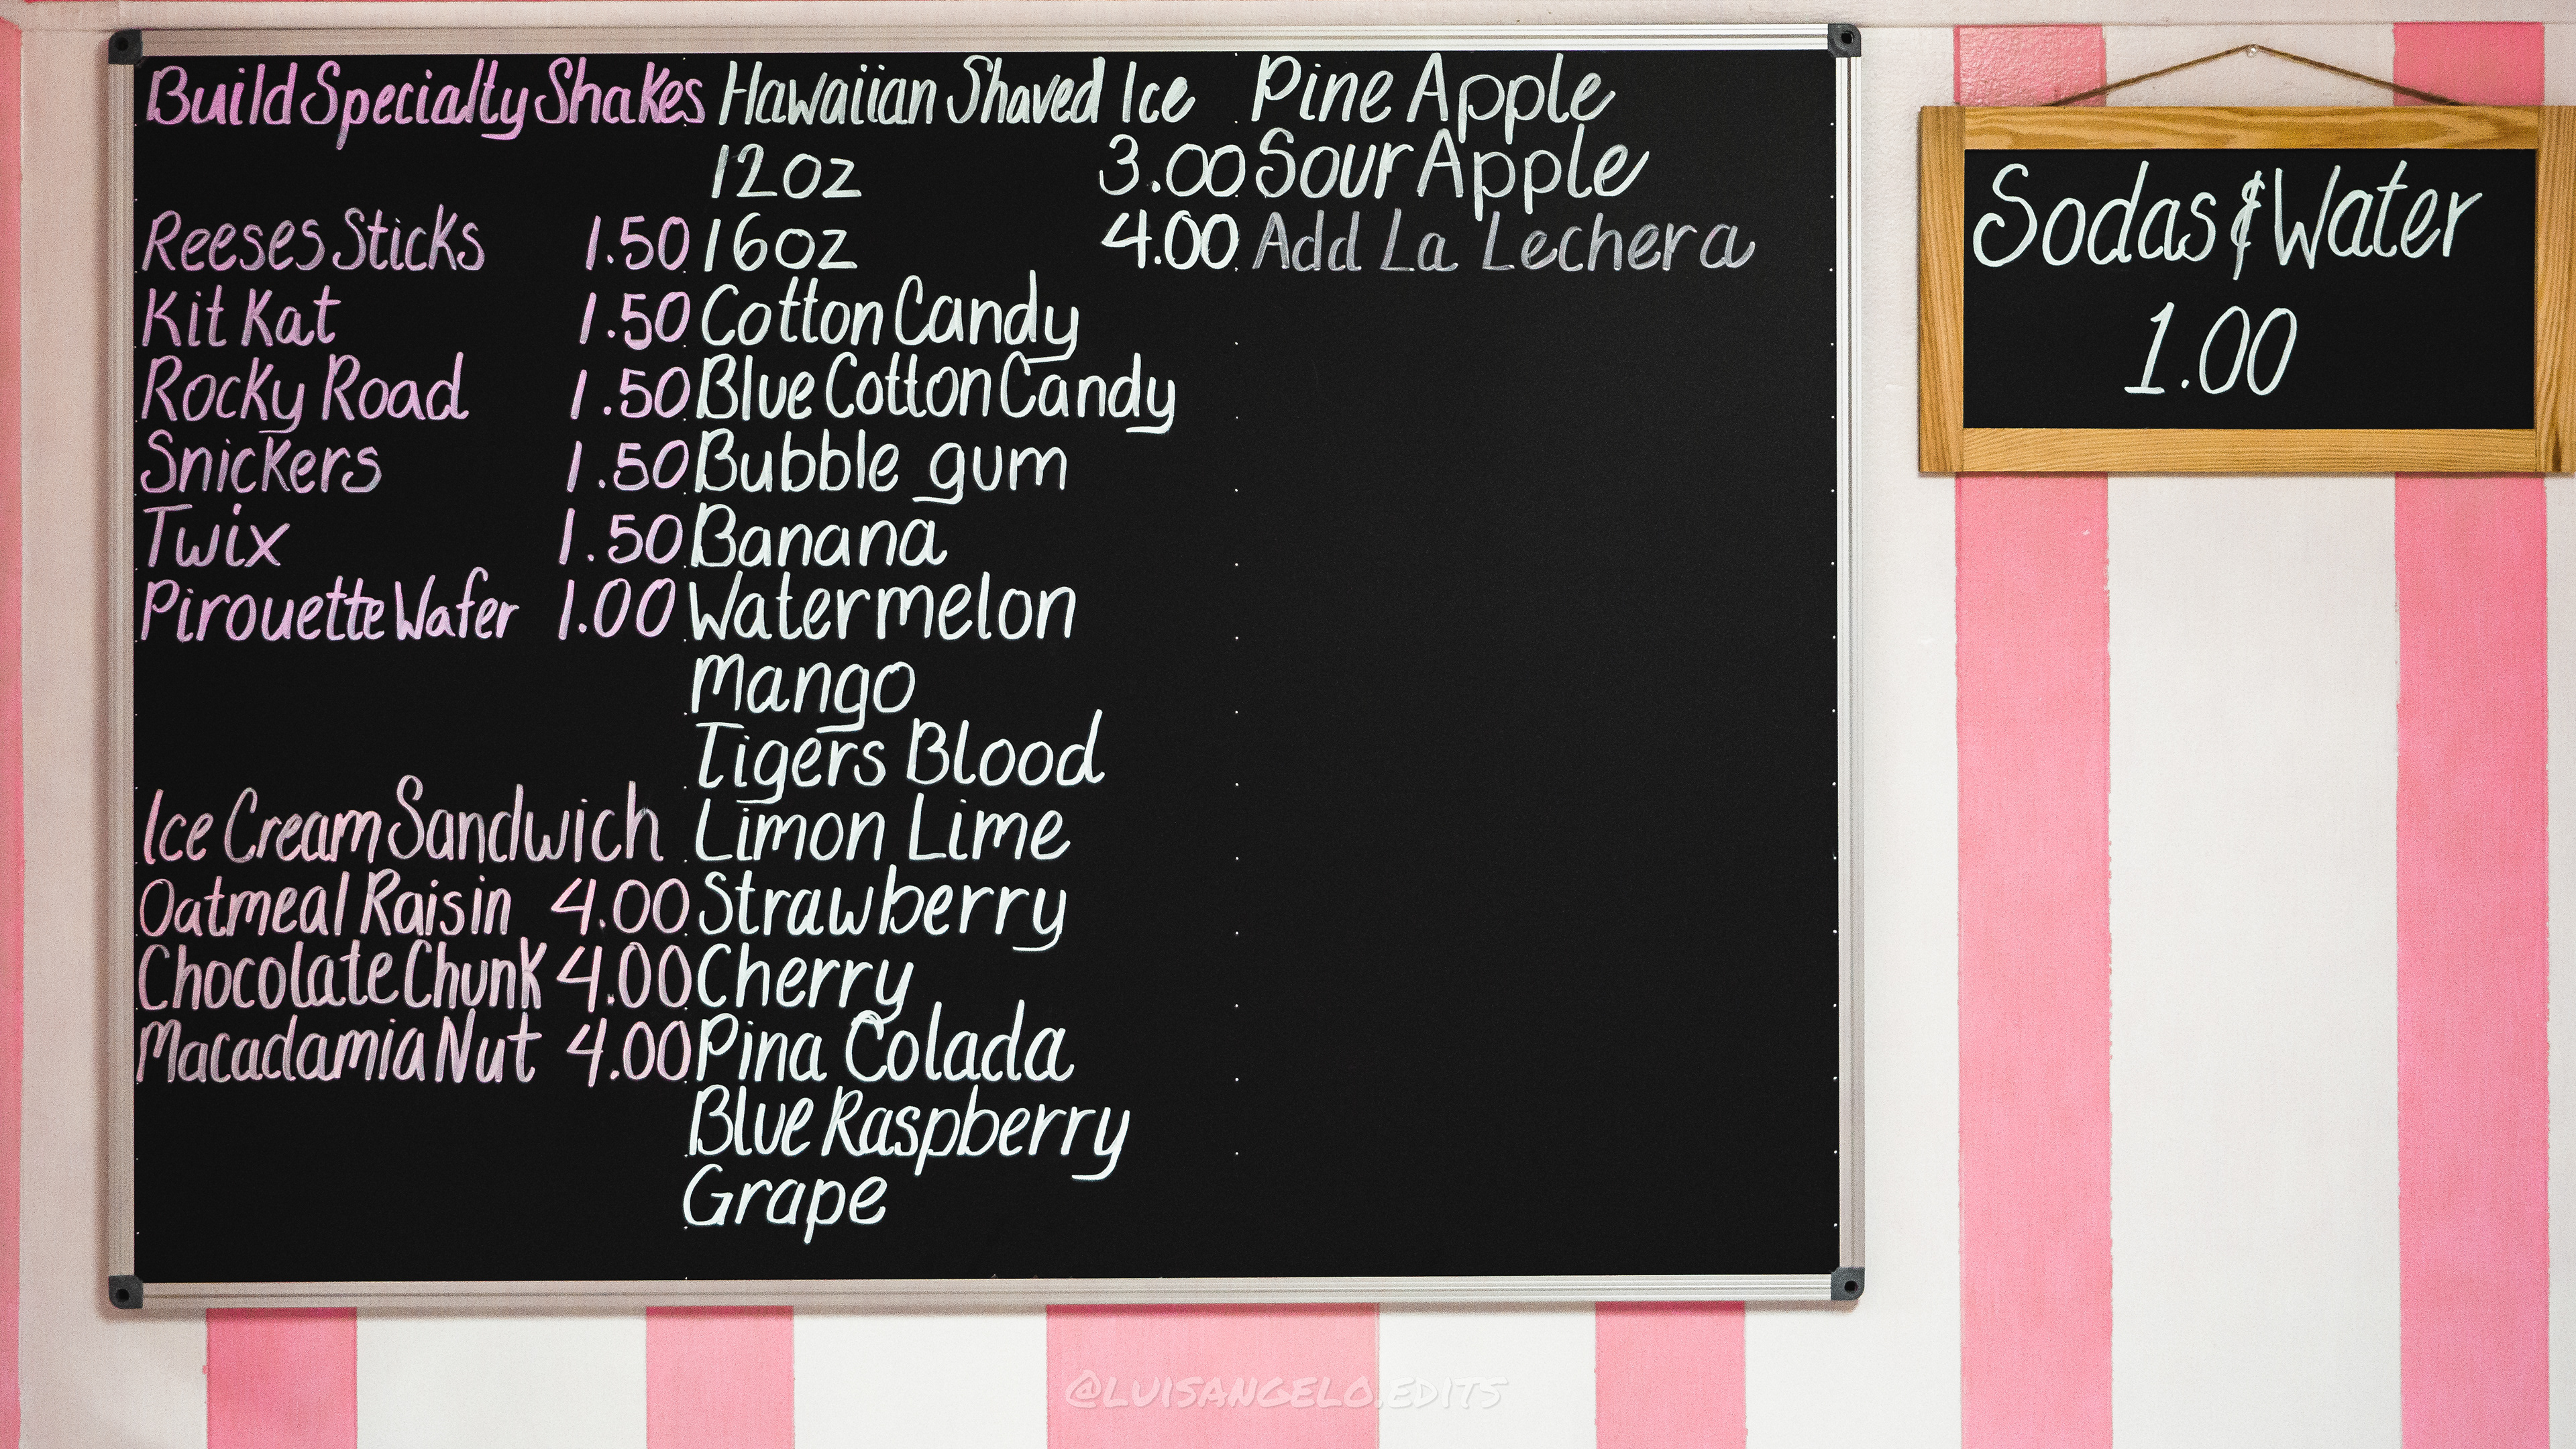 Build Specialty Shakes
Reeses Sticks 1.50
Kit Kat 1.50
Rocky Road 1.50
Snickers 1.50
Twix 1.50
Pirouette Wafer 1.00
Ice Cream Sandwich
Oatmeal Raisin 4.00
Chocolate Chunk 4.00
Macadamia Nut 4.00
Hawaiian Shaved Ice
12oz 3.00
16oz 4.00
Cotton Candy
Blue Cotton Candy
Bubble gum
Banana
Watermelon
Mango
Tigers Blood
Limon Lime
Strawberry
Cherry
Pina Colada
Blue Raspberry
Grape
Pine Apple
Sour Apple
Add La Lechera
Sodas & Water
1.00
@LUISANGELO.EDITS